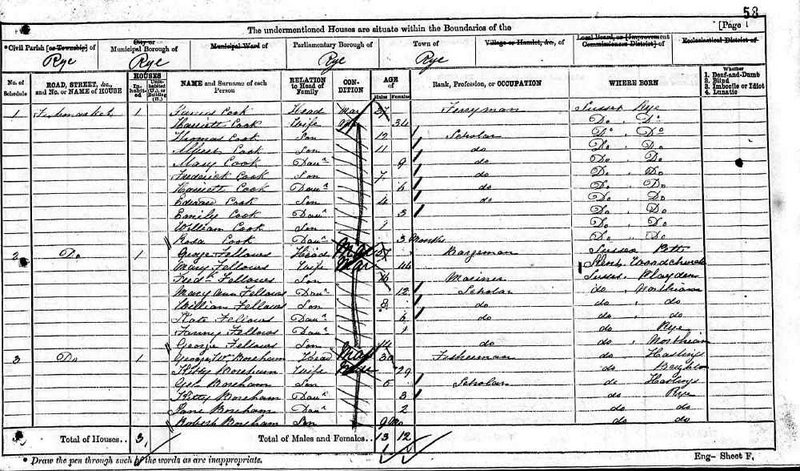 53
The undermentioned Houses are situate within the Boundaries of the [Page
*Civil Parish [or Township] of City or Municipal Borough of Municipal Ward of Parliamentary Borough of Town of Village or Hamlet, &c., of Local Board, or [Improvement Commissioners District] of Ecclesiastical District of
Rye Rye Rye Rye
No. of Schedule ROAD, STREET, &c., and No. or NAME of HOUSE HOUSES Inhabited NAME and Surname of each Person RELATION to Head of Family CONDITION AGE of Males Females Rank, Profession, or OCCUPATION WHERE BORN Whether 1. Deaf-and-Dumb 2. Blind 3. Imbecile or Idiot 4. Lunatic
1 Fishmarket 1 Cook Head Mar 37 Ferryman Sussex Rye
Harriett Cook Wife 34 Do Do
Thomas Cook Son 12 Scholar Do Do
Albert Cook Son 11 do Do Do
Mary Cook Daur 9 do Do Do
Frederick Cook Son 7 do Do Do
Harriett Cook Daur 6 do Do Do
Edward Cook Son 4 do Do Do
Emily Cook Daur 3 Do Do
William Cook Son 1 Do Do
Rosa Cook Daur 3 Months Do Do
2 Do 1 George Fellows Head Mar Bargeman Sussex
Mary Fellows Wife Mar 44 Kent
Fredk Fellows Son Mariner Sussex Playden
Mary Ann Fellows Daur 12 Scholar do Northiam
William Fellows Son 8 do do do
Kate Fellows Daur 6 do do do
Fanny Fellows Daur 1 do Rye
George Fellows Son 14 do do Northiam
3 Do 1 George Wm Boreham Head Mar 30 Fisherman do Hastings
Kitty Boreham Wife Mar 29 do Brighton
Geo Boreham Son 5 Scholar do Hastings
Kitty Boreham Daur 3 do Rye
Jane Boreham Daur 2 do do
Robert Boreham Son 9 Mo do do
3 Total of Houses.. 3 Total of Males and Females.. 13 12
* Draw the pen through such of the words as are inappropriate. Eng- Sheet F.